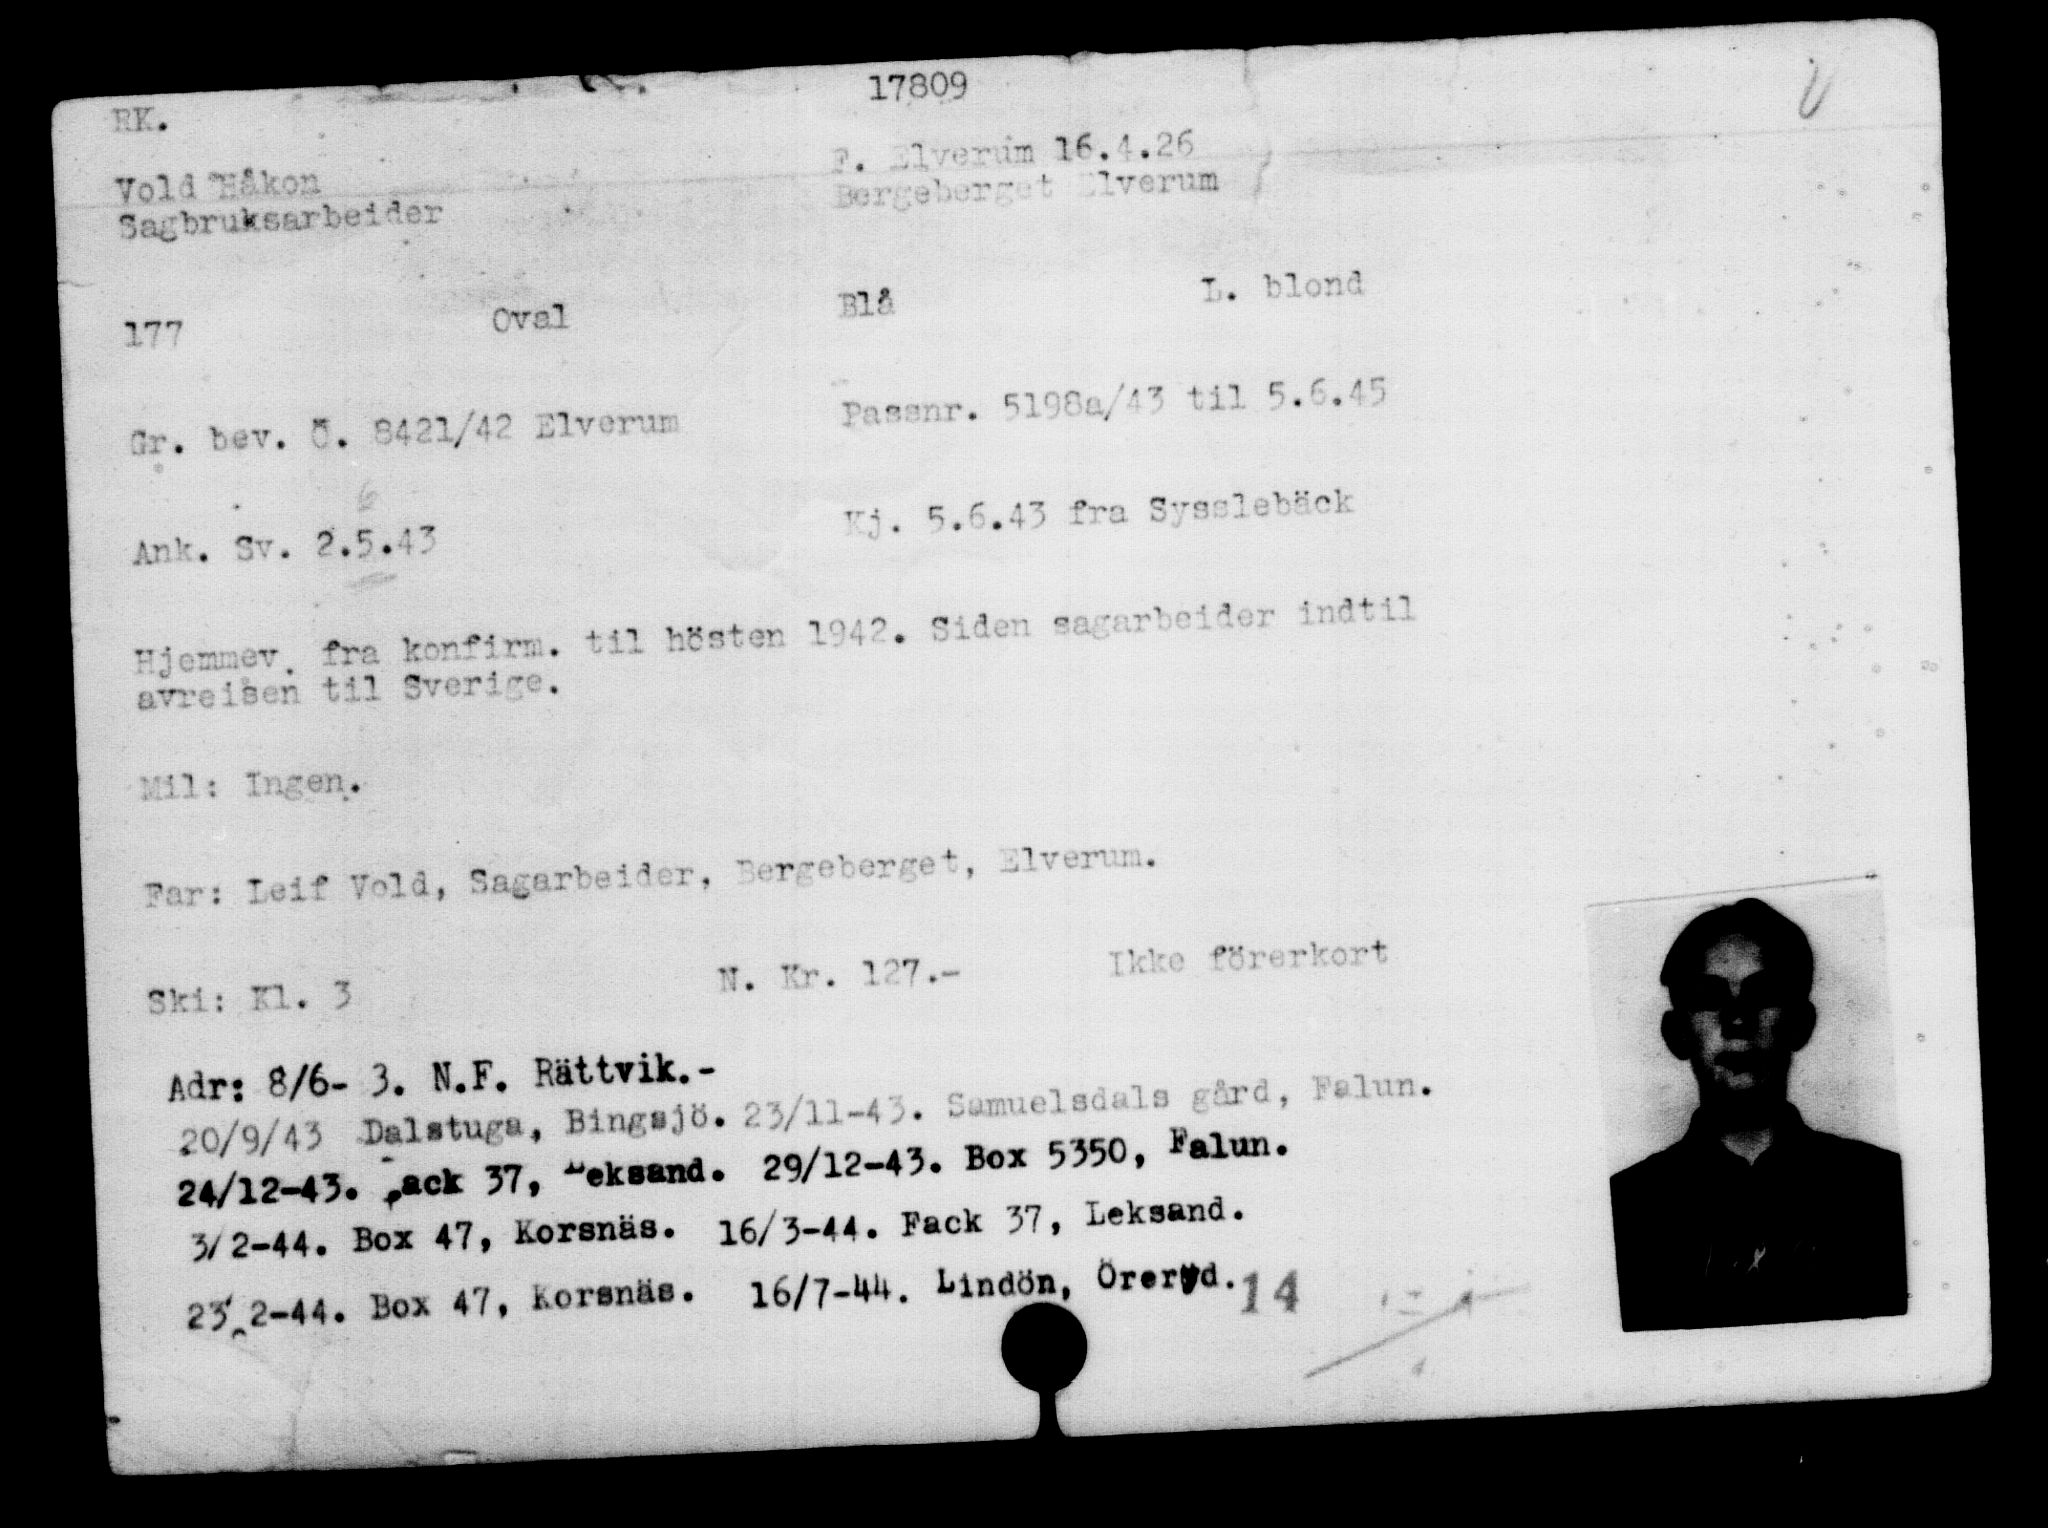 17809
RK.
F. Elverum 16.4.26
Vold Håkon
Bergeberget Elverum
Sagbruksarbeider
177 Oval Blå L. blond
Gr. bev. Ö. 8421/42 Elverum Passnr. 5198a/43 til 5.6.45
6
Ank. Sv. 2.5.43 Kj. 5.6.43 fra Sysslebäck
Hjemmev. fra konfirm. til hösten 1942. Siden sagarbeider indtil
avreisen til Sverige.
Mil: Ingen.
Far: Leif Vold, Sagarbeider, Bergeberget, Elverum.
Ski: Kl. 3 N. Kr. 127.- Ikke förerkort
Adr: 8/6- 3. N.F. Rättvik.-
20/9/43 Dalstuga, Bingsjö. 23/11-43. Samuelsdals gård, Falun.
24/12-43. Fack 37, Leksand. 29/12-43. Box 5350, Falun.
3/2-44. Box 47, Korsnäs. 16/3-44. Fack 37, Leksand.
23/2-44. Box 47, Korsnäs. 16/7-44. Lindön, Öreryd. 14